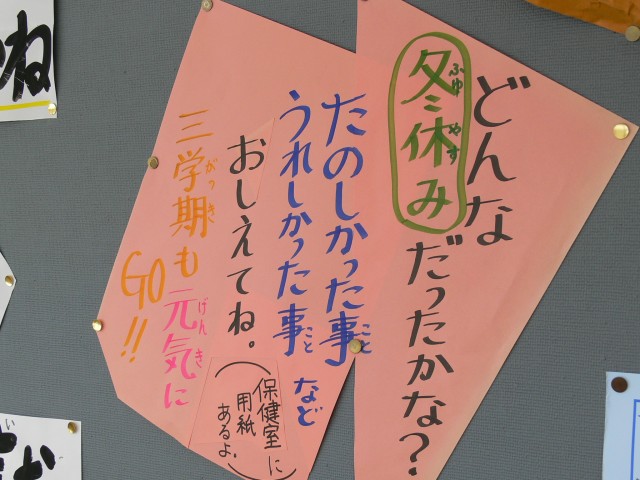 どんな冬休みだったかな?
ふゆやす
たのしかった事
こと
うれしかった事など
こと
おしえてね。
三学期も元気に
がっき
げんき
GO!!
(保健室に
用紙
あるよ.)
ね